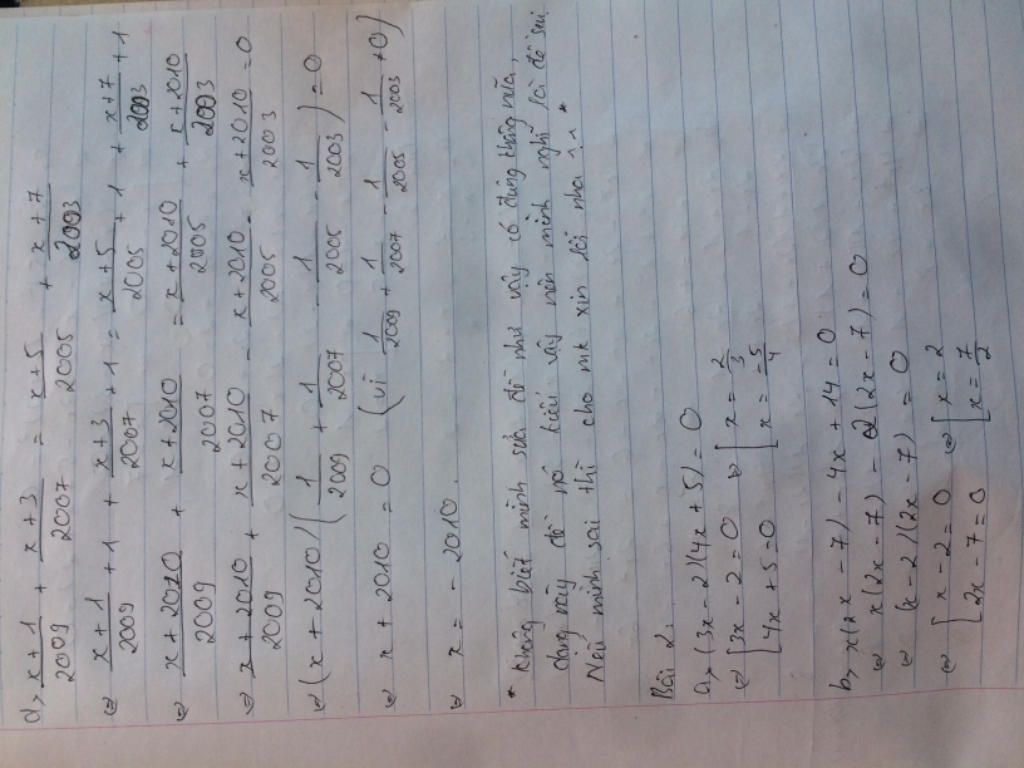 d, x+1/2009 + x+3/2007 = x+5/2005 + x+7/2003
⇔ x+1/2009 + 1 + x+3/2007 + 1 = x+5/2005 + 1 + x+7/2003 + 1
⇔ x+2010/2009 + x+2010/2007 = x+2010/2005 + x+2010/2003
⇔ x+2010/2009 + x+2010/2007 - x+2010/2005 - x+2010/2003 = 0
⇔ (x+2010)(1/2009 + 1/2007 - 1/2005 - 1/2003) = 0
⇔ x + 2010 = 0 (vì 1/2009 + 1/2007 - 1/2005 - 1/2003 ≠ 0)
⇔ x = - 2010.
* Không biết mình sửa đề như vậy có đúng không nữa,
nhưng mấy đề nó kiểu vậy nên mình nghĩ là đề sai
Nếu mình sai thì cho mk xin lỗi nha ^^ *
Bài 2.
a, (3x - 2)(4x + 5) = 0
⇔ [3x - 2 = 0 ⇔ [x = 2/3
[4x + 5 = 0 [x = -5/4
b, x(2x - 7) - 4x + 14 = 0
⇔ x(2x - 7) - 2(2x - 7) = 0
⇔ (x - 2)(2x - 7) = 0
⇔ [x - 2 = 0 ⇔ [x = 2
[2x - 7 = 0 [x = 7/2